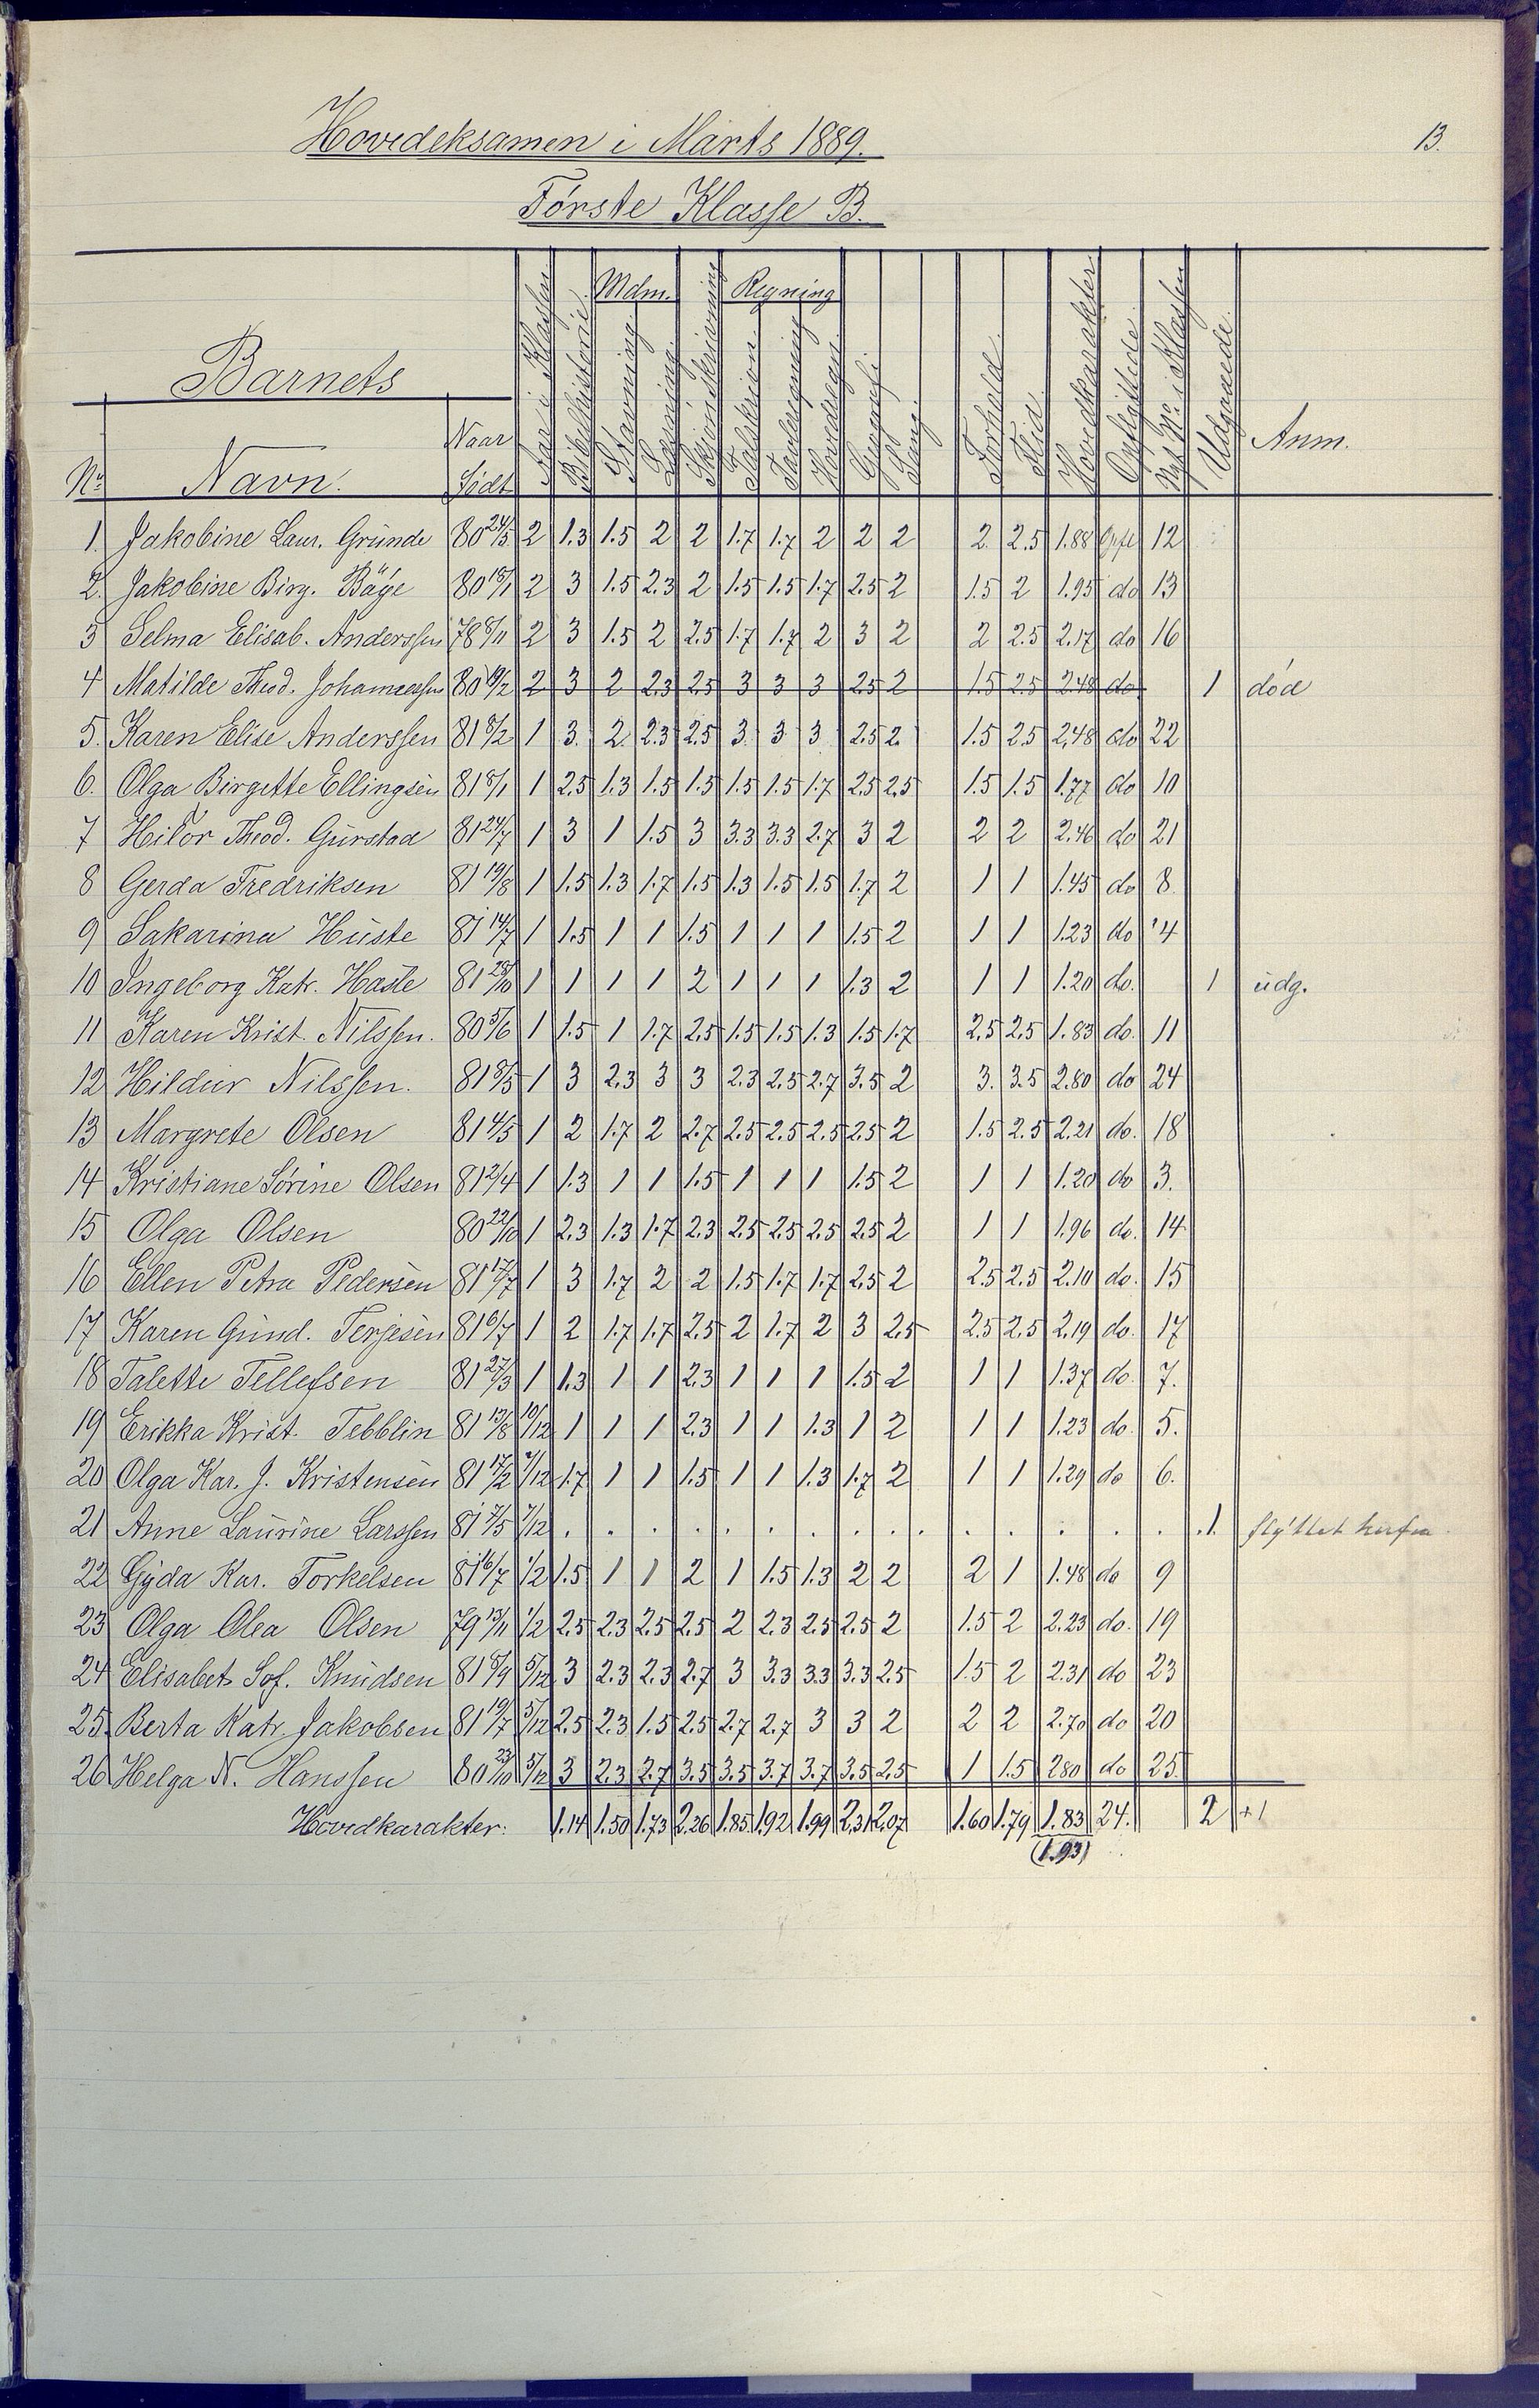 13.
Hovedeksamen i Marts 1889.
Første Klasse B.
Barnets
No. Navn. Naar Født Aar i Klassen Bibelhistorie. Mdm. Stavning. Læsning. Skjønskrivning Regning Talskrivn. Tavleregning Hovedregn. Sang. Forhold. Flid Hovedkarakter. Opflyttede. Nyt No. i Klassen Udgaaede. Anm.
1. Jakobine Laur. Grunde 80 24/5 2 1.3 1.5 2 2 1.7 1.7 2 2 2 2. 2.5 1.88 Opfl 12
2. Jakobine Birg. Bäye 80 18/1 2 3 1.5 2.3 2 1.5 1.5 1.7 2.5 2 1.5 2 1.95 do 13
3 Selma Elisab. Anderssen 78 8/11 2 3 1.5 2 2.5 1.7 1.7 2 3 2 2 2.5 2.17 do 16
4 Matilde Theod. Johannessen 80 19/2 2 3 2 2.3 2.5 3 3 3 2.5 2 1.5 2.5 2.48 do 1 död
5. Karen Elise Anderssen 81 8/2 1 3. 2. 2.3 2.5 3. 3 3 2.5 2. 1.5 2.5 2.48 do 22
6. Olga Birgitte Ellingsen 81 8/1 1 2.5 1.3 1.5 1.5 1.5 1.5 1.7 2.5 2.5 1.5 1.5 1.77 do 10
7 Hilör Theod. Gurstad 81 24/7 1 3 1 1.5 3 3.3 3.3 2.7 3 2 2 2 2.46 do 21
8 Gerda Fredriksen 81 19/8 1 1.5 1.3 1.7 1.5 1.3 1.5 1.5 1.7 2 1 1 1.45 do 8
9 Sakarina Huste 81 14/7 1 1.5 1 1 1.5 1 1 1 1.5 2 1 1 1.23 do 4
10 Ingeborg Katr. Hasle 81 28/10 1 1 1 1 2 1 1 1 1.3 2 1 1 1.20 do. 1 udg.
11 Karen Krist. Nilssen. 80 5/6 1 1.5 1 1.7 2.5 1.5 1.5 1.3 1.5 1.7 2.5 2.5 1.83 do. 11
12 Hildur Nilssen. 81 8/5 1 3 2.3 3 3 2.3 2.5 2.7 3.5 2 3. 3.5 2.80 do 24
13 Margrete Olsen 81 4/5 1 2 1.7 2 2.7 2.5 2.5 2.5 2.5 2 1.5 2.5 2.21 do. 18
14 Kristiane Sørine Olsen 81 2/4 1 1.3 1 1 1.5 1 1 1 1.5 2 1 1 1.20 do 3.
15 Olga Olsen 80 22/10 1 2.3 1.3 1.7 2.3 2.5 2.5 2.5 2.5 2 1 1 1.96 do. 14
16 Ellen Petra Pedersen 81 17/7 1 3 1.7 2 2 1.5 1.7 1.7 2.5 2 2.5 2.5 2.10 do. 15
17 Karen Gund. Terjesen 81 6/7 1 2 1.7 1.7 2.5 2 1.7 2 3 2.5 2.5 2.5 2.19 do. 17
18 Talette Tellefsen 81 27/3 1 1.3 1 1 2.3 1 1 1 1.5 2 1 1 1.37 do. 7.
19 Erikka Krist. Tebblin 81 13/8 10/12 1 1 1 2.3 1 1 1.3 1 2 1 1 1.23 do. 5.
20 Olga Kar. J. Kristensen 81 17/2 7/12 1.7 1 1 1.5 1 1 1.3 1.7 2 1 1 1.29 do 6.
21 Anne Laurine Larssen 81 7/5 7/12 . . . . . . . . . . . . . . . 1. flyttet herfra
22 Gyda Kar. Torkelsen 81 16/7 1/2 1.5 1 1 2 1 1.5 1.3 2 2 2 1 1.48 do 9
23 Olga Olea Olsen 79 13/11 1/2 2.5 2.3 2.5 2.5 2 2.3 2.5 2.5 2 1.5 2 2.23 do. 19
24 Elisabet Sof. Knudsen 81 8/9 5/12 3 2.3 2.3 2.7 3 3.3 3.3 3.3 2.5 1.5 2 2.31 do 23
25. Berta Katr. Jakobsen 81 19/7 5/12 2.5 2.3 1.5 2.5 2.7 2.7 3 3 2 2 2 2.70 do 20
26 Helga N. Hanssen 80 23/10 5/12 3 2.3 2.7 3.5 3.5 3.7 3.7 3.5 2.5 1 1.5 280 do 25.
Hovedkarakter: 1.14 1.50 1.73 2.26 1.85 1.92 1.99 2,31 2,07 1.60 1.79 1.83 24. 2 +1
(1.93)